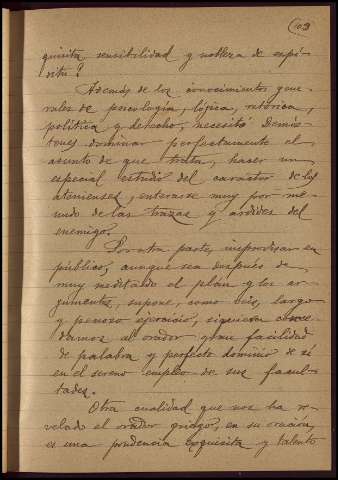 109
quisita sensibilidad y nobleza de espí-
ritu?
Además de los conocimientos gene-
rales de psicología, lógica, retórica,
política y derecho, necesitó Demós-
tenes dominar perfectamente el
asunto de que trata, hacer un
especial estudio del caracter de los
atenienses, enterarse muy por me-
nudo de las trazas y ardides del
enemigo.
Por otra parte, improvisar en
público, aunque sea después de
muy meditado el plan y los ar-
gumentos, supone, como dije, largo
y penoso ejercicio, siquiera conce-
damos al orador gran facilidad
de palabra y perfecto dominio de sí
en el sereno empleo de sus facul-
tades.
Otra cualidad que nos ha re-
velado el orador griego, en su oración,
es una prudencia exquisita y talento